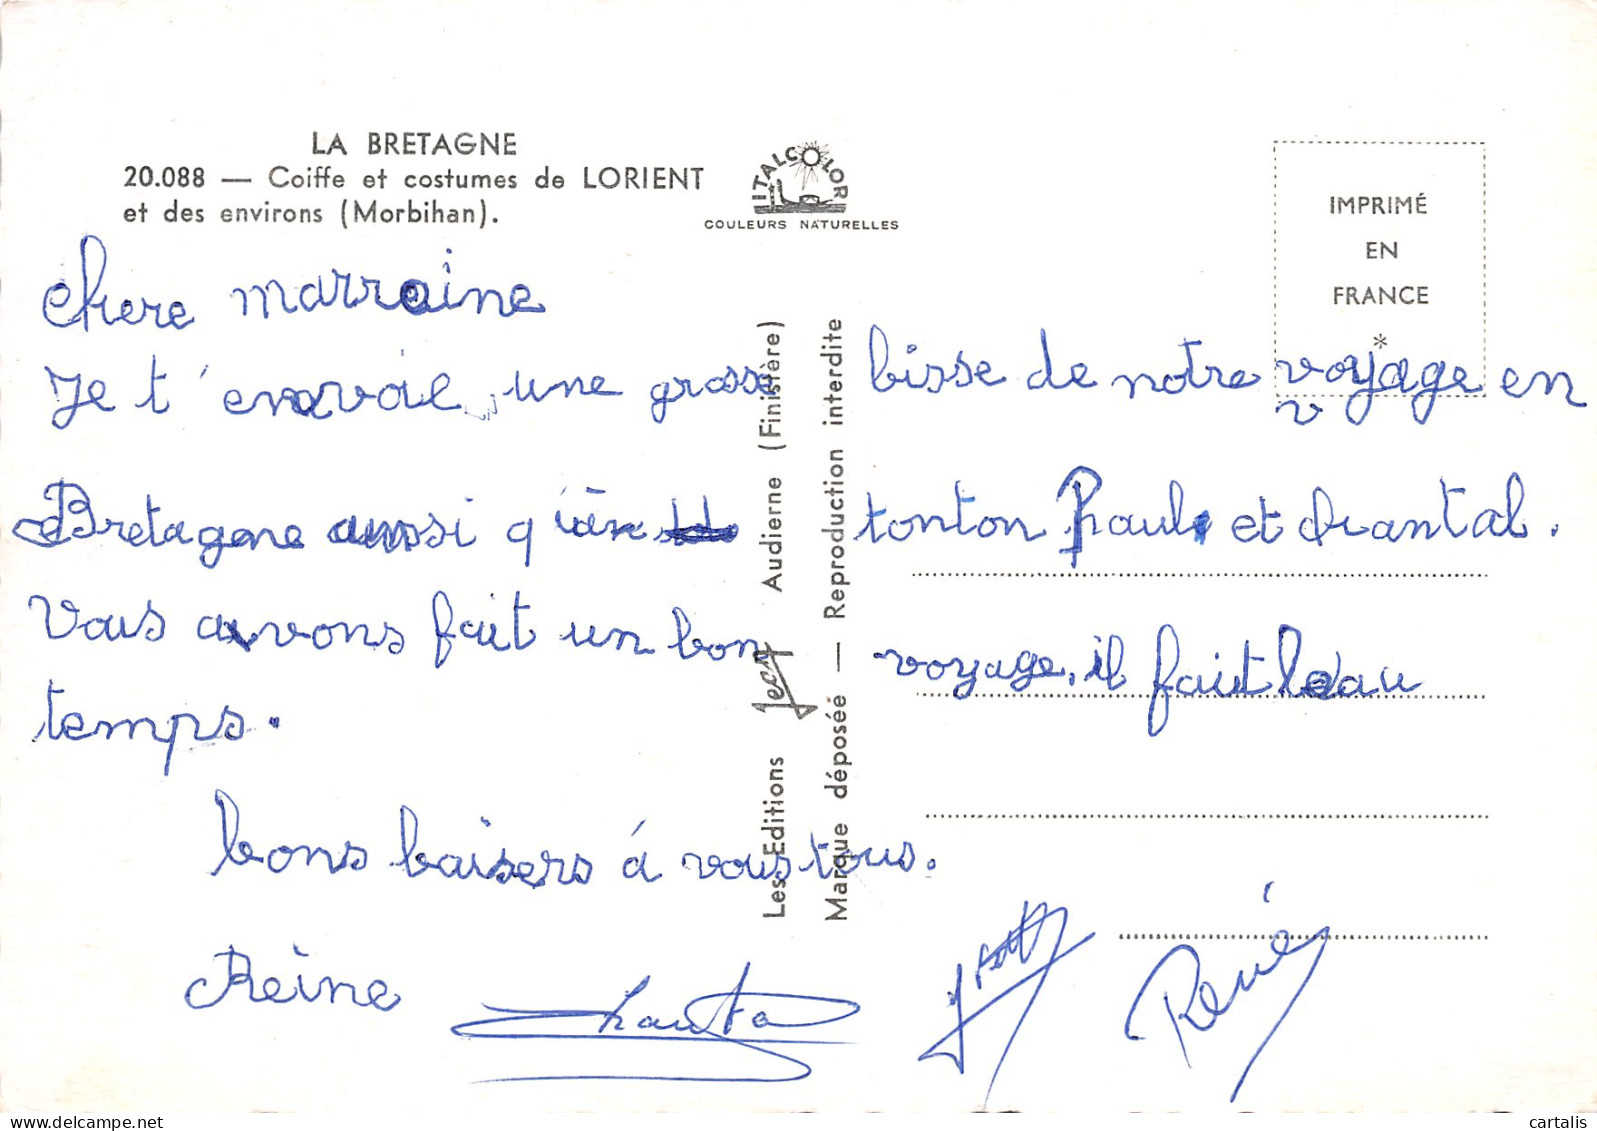 LA BRETAGNE
20.088 — Coiffe et costumes de LORIENT
et des environs (Morbihan).
ITALCOLOR
COULEURS NATURELLES
IMPRIMÉ
EN
FRANCE
*
Les Editions Jecy Audierne (Finistère)
Marque déposée — Reproduction interdite
chere marraine
Je t'envoie une grosse bisse de notre voyage en
v
Bretagne aussi q'à tonton Paul et chantal.
Vous avons fait un bon voyage, il fait beau
temps.
bons baisers á vous tous.
Reine
Chanta
René
cartalis